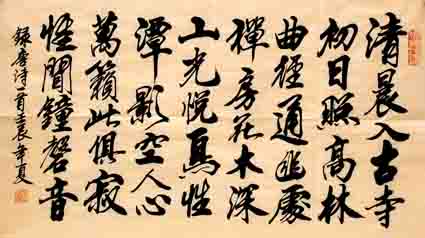 清晨入古寺
初日照高林
曲徑通幽處
禪房花木深
山光悅鳥性
潭影空人心
萬籟此俱寂
惟聞鐘磬音
錄唐诗一首壬辰年夏